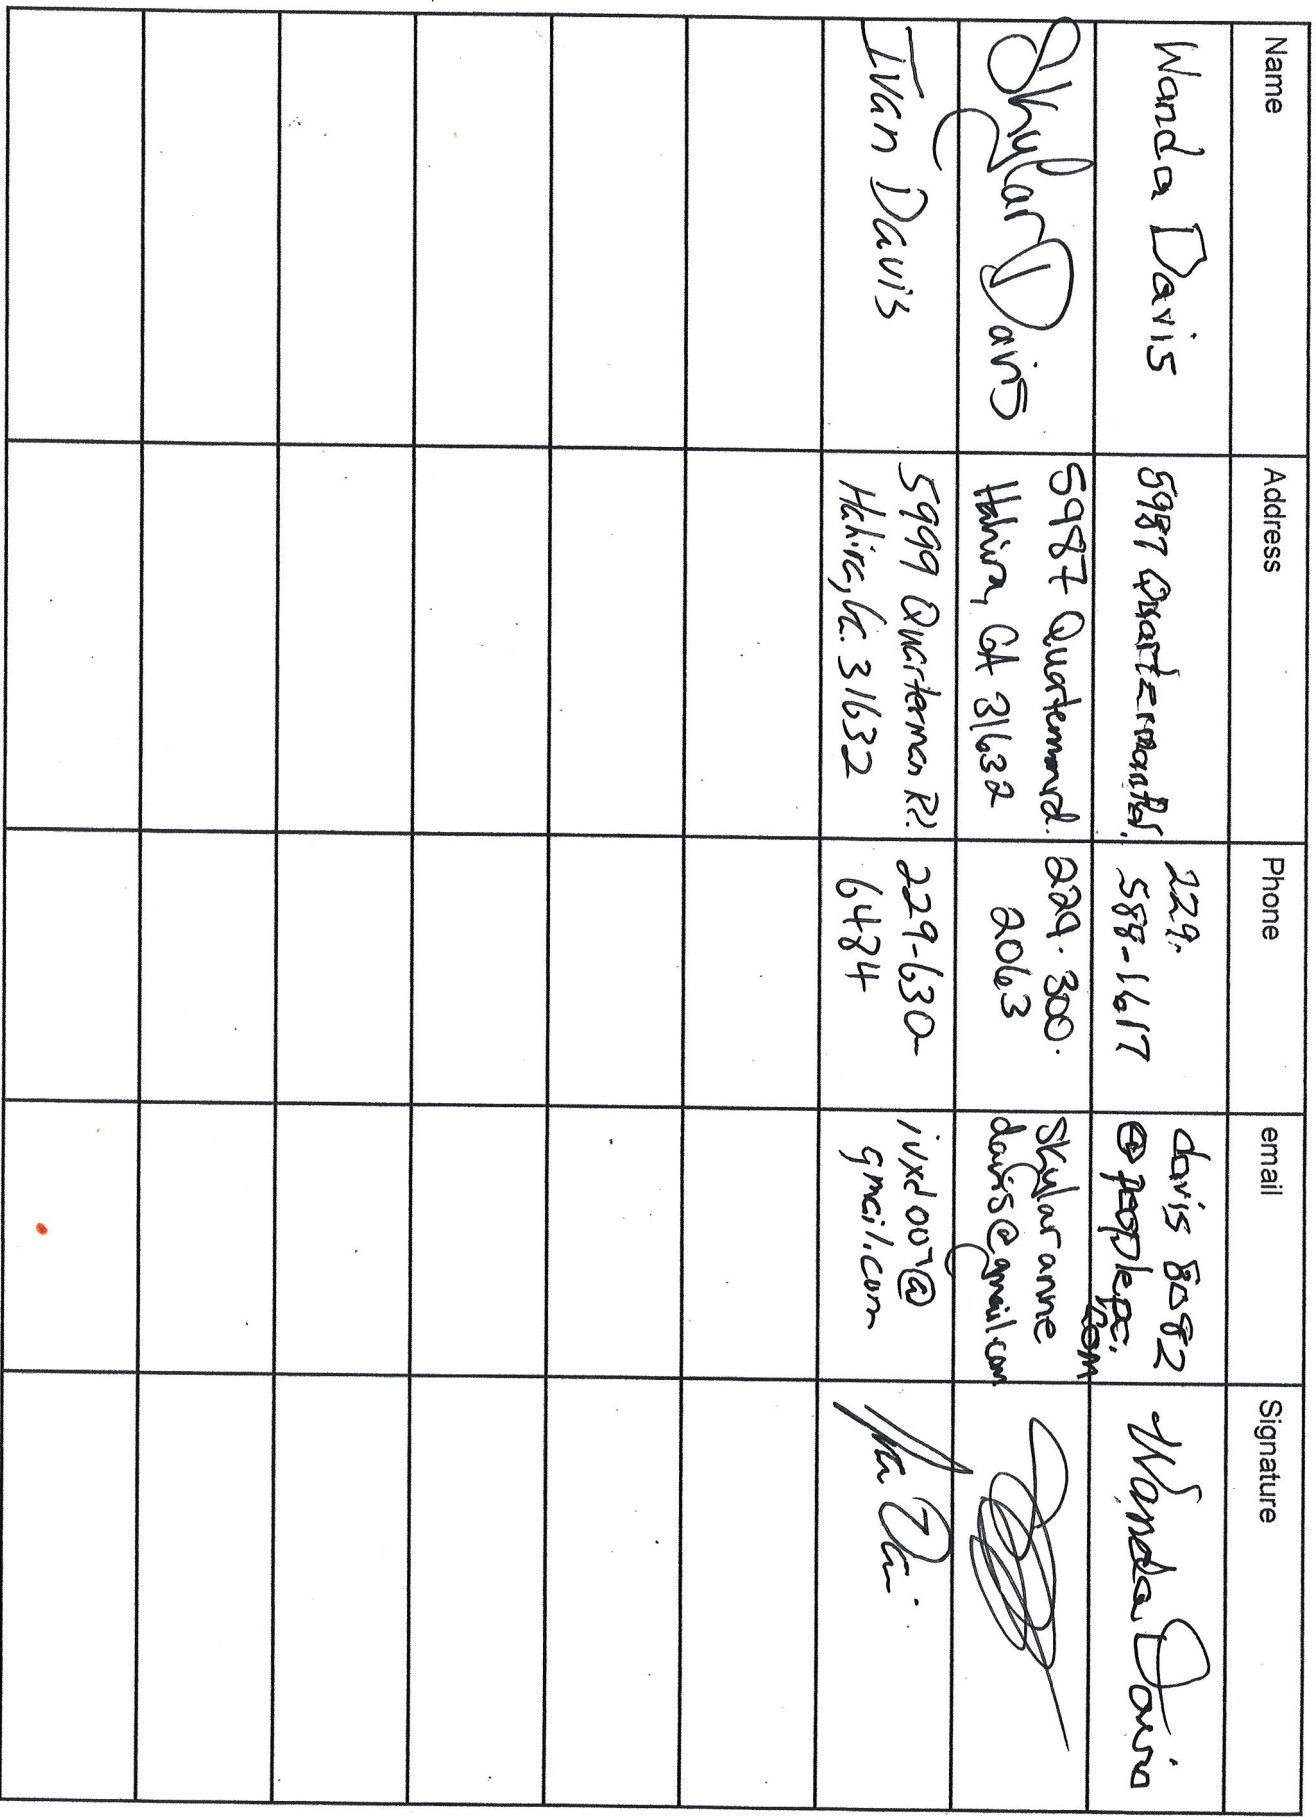 Name Address Phone email Signature
Wanda Davis
5987 Quarterman Rd.
229.
588-1617
davis 8082
@peoplepc.
com
Wanda Davis
Skylar Davis
5987 Quarterman rd.
Hahira, GA 31632
229.300.
2063
Skylaranne
davis@gmail.com
Ivan Davis
5999 Quarterman Rd.
Hahira, Ga. 31632
229-630-
6484
ivxd007@
gmail.com